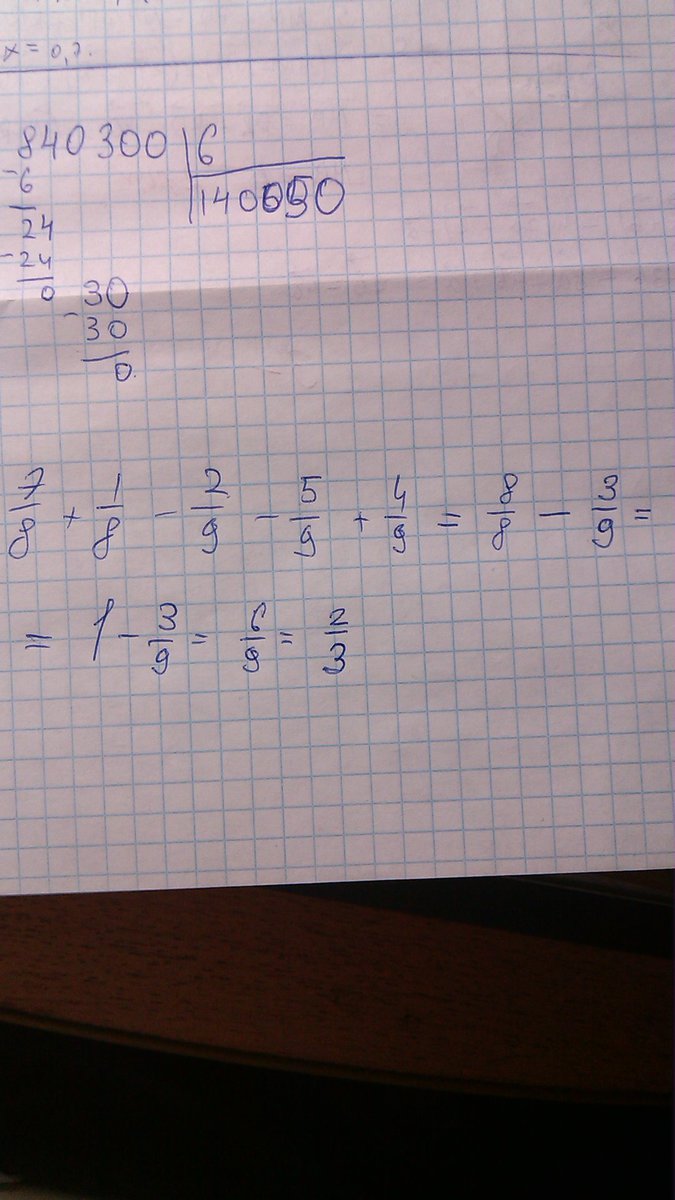 x = 0,2.
840300 | 6
- 6 | 140050
24
- 24
0
- 30
30
0.
7/8 + 1/8 - 2/9 - 5/9 + 4/9 = 8/8 - 3/9 =
= 1 - 3/9 = 6/9 = 2/3